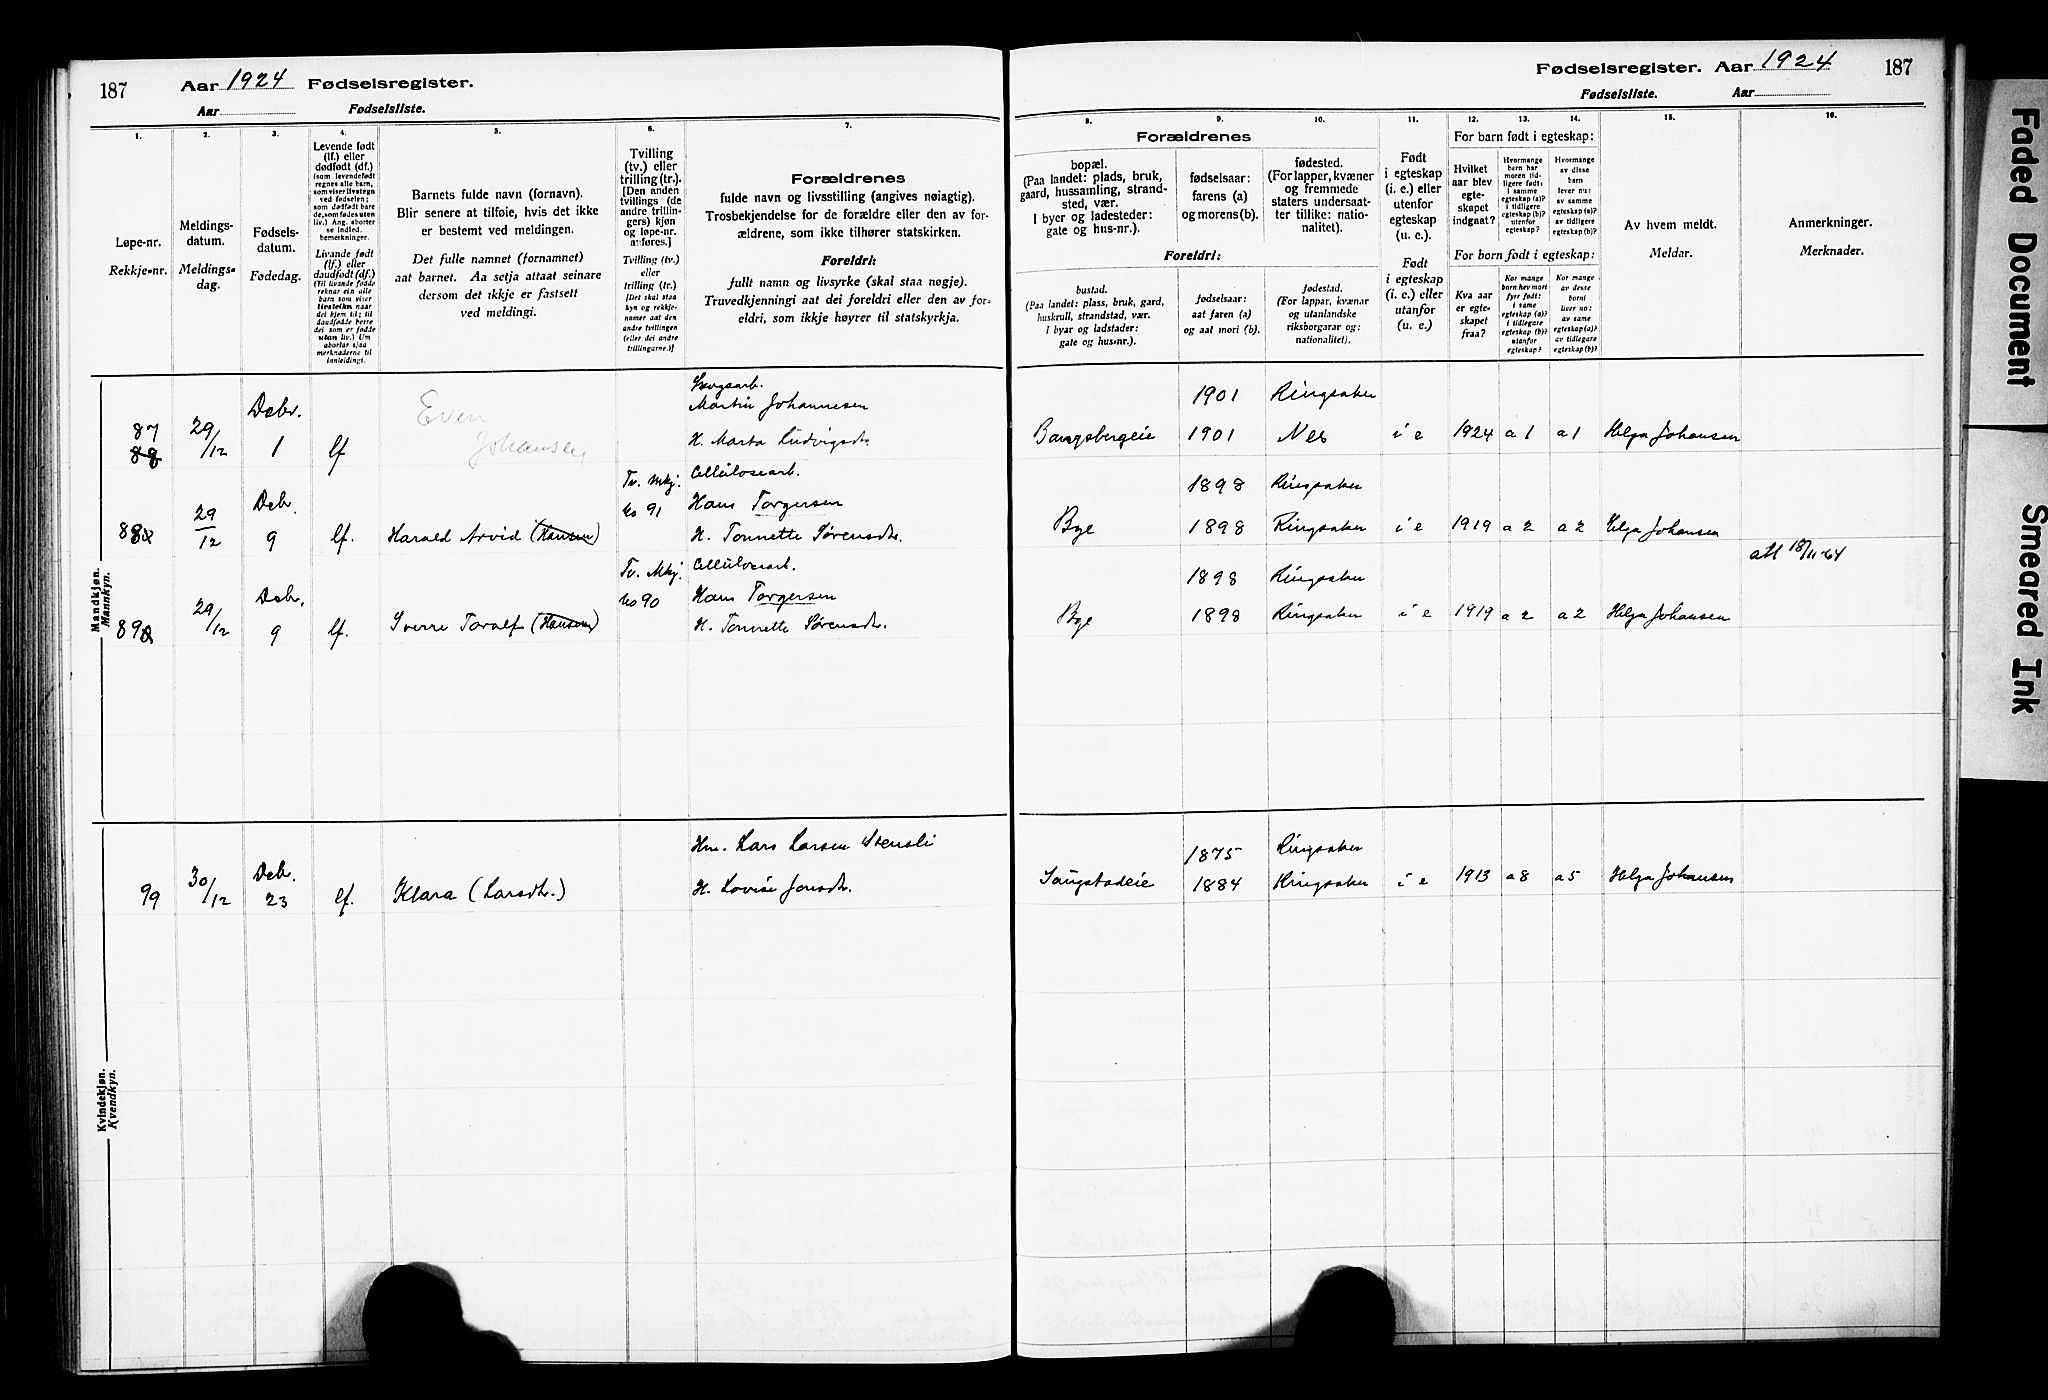 187 Aar 1924 Fødselsregister.
Aar Fødselsliste.
Fødselsregister. Aar 1924 187
Fødselsliste. Aar
1. 2. 3. 4. 5. 6. 7.
Løpe-nr.
Rekkje-nr.
Meldings-
datum.
Meldings-
dag.
Fødsels-
datum.
Fødedag.
Levende født
(lf.) eller
dødfødt (df.)
Barnets fulde navn (fornavn).
Blir senere at tilføie, hvis det ikke
er bestemt ved meldingen.
Det fulle namnet (fornamnet)
aat barnet. Aa setja attaat seinare
dersom det ikkje er fastsett
ved meldingi.
Tvilling
(tv.) eller
trilling (tr.).
[Den anden
tvillings (de
andre trillin-
gers) kjøn
og løpe-nr.
anføres.]
Tvilling (tv.)
eller
trilling (tr.)
[Det skal staa
kyn og rekkje-
numer aat den
andre tvillingen
(eller dei andre
trillingarne.)]
Forældrenes
fulde navn og livsstilling (angives nøiagtig).
Trosbekjendelse for de forældre eller den av for-
ældrene, som ikke tilhører statskirken.
Foreldri:
fullt namn og livsyrke (skal staa nøgje).
Truvedkjenningi aat dei foreldri eller den av for-
eldri, som ikkje høyrer til statskyrkja.
8. 9. 10. 11. 12. 13. 14. 15. 16.
Forældrenes
bopæl.
(Paa landet: plads, bruk,
gaard, hussamling, strand-
sted, vær.
I byer og ladesteder:
gate og hus-nr.).
fødselsaar:
farens (a)
og morens (b).
fødested.
(For lapper, kvæner
og fremmede
staters undersaat-
ter tillike: natio-
nalitet).
Foreldri:
bustad.
(Paa landet: plass, bruk, gard,
huskrull, strandstad, vær.
I byar og ladstader:
gate og hus-nr.).
fødselsaar:
aat faren (a)
og aat mori (b).
fødestad.
(For lappar, kvænar
og utanlandske
riksborgarar og:
nationalitet).
Født
i egteskap
(i. e.) eller
utenfor
egteskap
(u. e.).
Født
i egteskap
(i. e.) eller
utanfor
(u. e.).
For barn født i egteskap:
Hvilket
aar blev
egte-
skapet
indgaat?
Hvormange
barn har
moren tid-
ligere født:
i samme
egteskap (a)?
i tidligere
egteskap (b)?
utenfor
egteskap?
Hvormange
av disse
barn
lever nu:
av samme
egteskap (a)?
av tidligere
egteskap (b)?
For born født i egteskap:
Kva aar
er egte-
skapet
fraa?
Kor mange
born hev mori
fyrr født:
i same
egteskap (a)?
i tidlegare
egteskap (b)?
utanfor
egteskap?
Kor mange
av desse
borni
liver no:
av same
egteskap (a)?
av tidlegare
egteskap (b)?
Av hvem meldt.
Meldar.
Anmerkninger.
Merknader.
Mandkjøn.
Mannkyn.
Skogsarb.
87 29/12 Debr. 1 lf Even Johansen Martin Johannesen
88 H. Marta Ludvigsdt.
1901 Ringsaker
Bangsbergeie 1901 Nes i e 1924 a 1 a 1 Helga Johansen
Tv. Mkj. Cellulosearb.
No 91 Hans Torgersen
88 29/12 Debr. 9 lf. Harald Arvid (Hansen) H. Tonnette Sørensdt.
1898 Ringsaker
Bye 1898 Ringsaker i e 1919 a 2 a 2 Helga Johansen
att 18/11-64
Tv. Mkj. Cellulosearb.
No 90 Hans Torgersen
89 29/12 Debr. 9 lf. Sverre Toralf (Hansen) H. Tonnette Sørensdt.
1898 Ringsaker
Bye 1898 Ringsaker i e 1919 a 2 a 2 Helga Johansen
Kvindekjøn.
Kvendkyn.
Hm. Lars Larsen Stensli
99 30/12 Debr. 23 lf. Klara (Larsdt.) H. Lovise Jonsdt.
1875 Ringsaker
Saugstadeie 1884 Ringsaker i e 1913 a 8 a 5 Helga Johansen
Faded Document
Smeared Ink